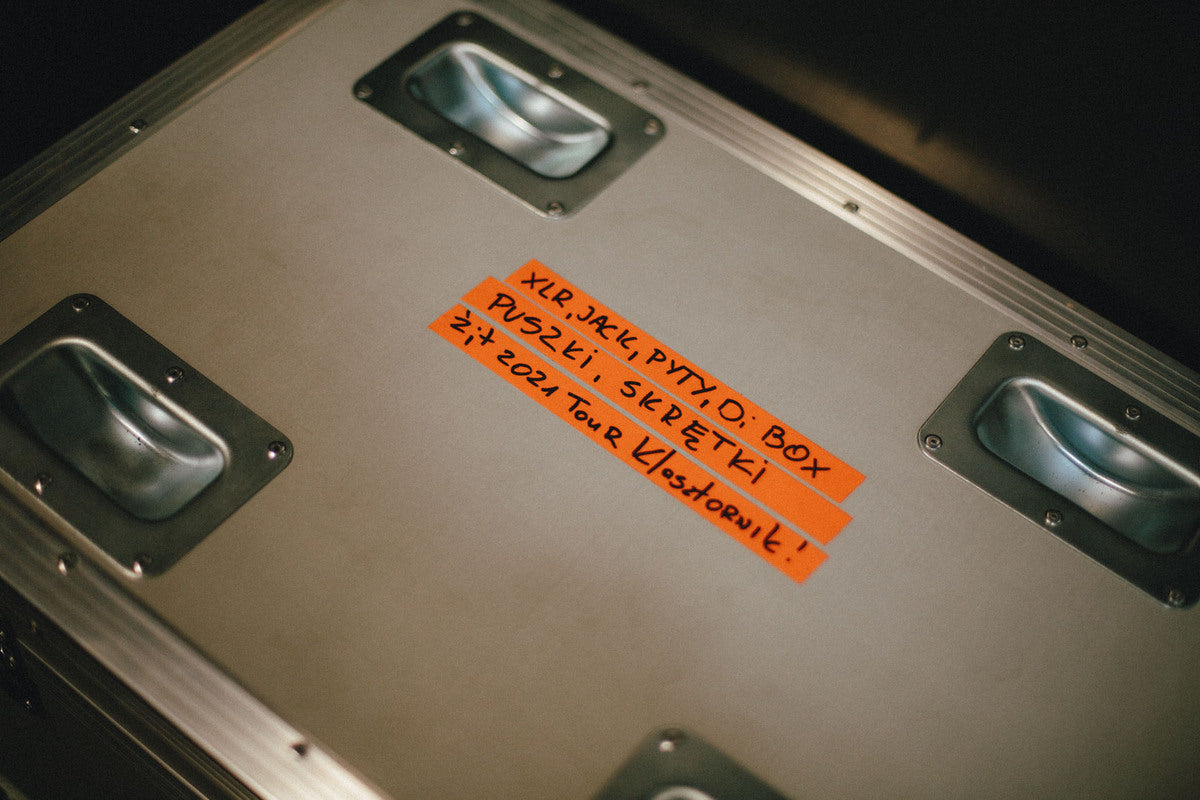 XLR, JACK, PYTY, Di BOX
PUSZKi, SKRĘTKi
ż;t 2021 TOUR Klasztornik!